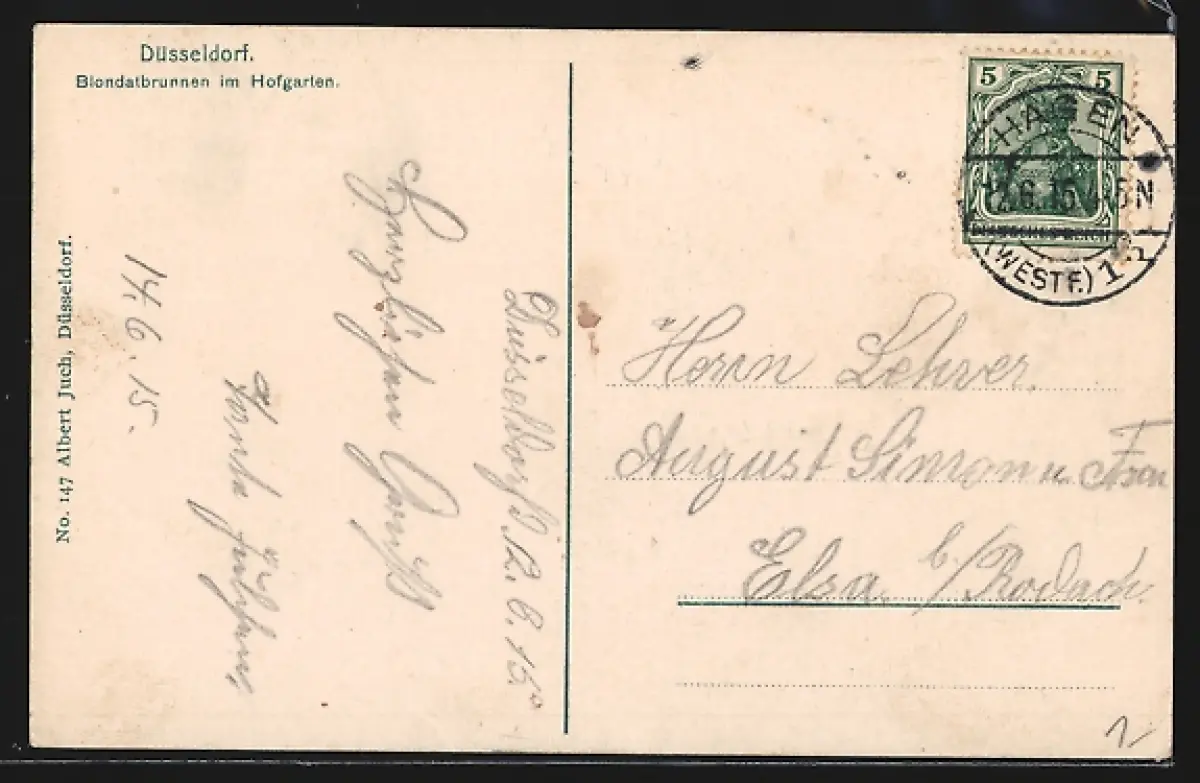 Düsseldorf.
Blondatbrunnen im Hofgarten.
No. 147 Albert Juch, Düsseldorf.
Düsseldorf 12. 6. 15.
Herzlichen Gruß
14. 6. 15.
5 5
DEUTSCHES REICH
HAGEN
12.6.15 5N
(WESTF.) 1
Herrn Lehrer
August Simon u. Frau
Elsa b/Rodach.